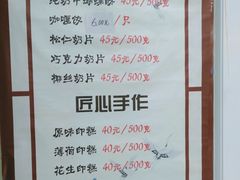 咖喱饺 6.00元/只
松仁奶片 45元/500克
巧克力奶片 45元/500克
椒丝奶片 45元/500克
匠心手作
原味印糕 40元/500克
薄荷印糕 40元/500克
花生印糕 40元/500克